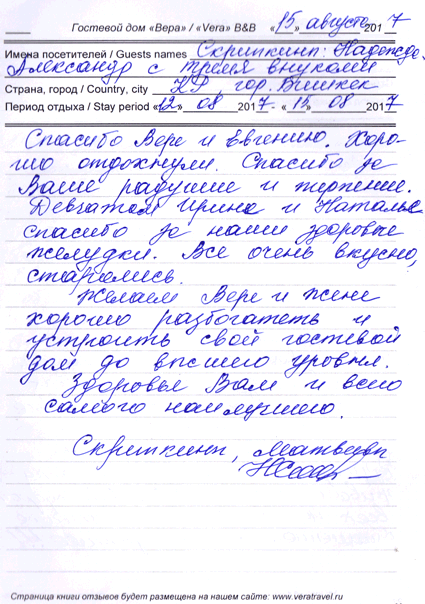 Гостевой дом «Вера» / «Vera» B&B «15» августа 2017
Имена посетителей / Guests names Скрипкины: Надежда,
Александр с тремя внуками
Страна, город / Country, city КР, гор. Бишкек
Период отдыха / Stay period «12» 08 2017 «15» 08 2017
Спасибо Вере и Евгению. Хоро-
шо отдохнули. Спасибо за
Ваше радушие и терпение.
Девчатам Ирине и Наталье
спасибо за наши здоровые
желудки. Все очень вкусно,
старались.
Желаем Вере и Жене
хорошо разбогатеть и
устроить свой гостевой
дом до высшего уровня.
Здоровья Вам и всего
самого наилучшего.
Скрипкины,
Страница книги отзывов будет размещена на нашем сайте: www.veratravel.ru